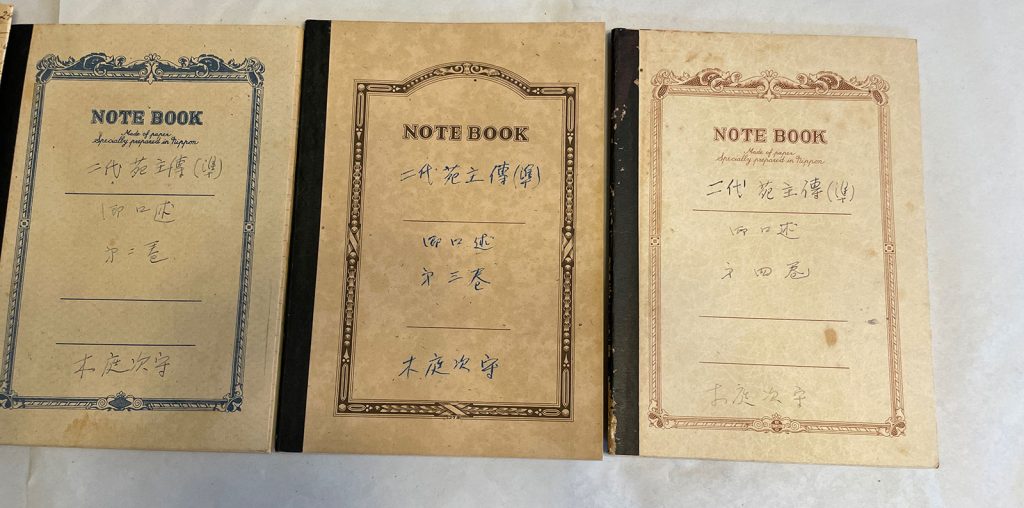 NOTE BOOK
Made of paper
Specially prepared in Nippon
二代苑主傳(準)
御口述
第二巻
木庭次守
NOTE BOOK
二代苑主傳(準)
御口述
第三巻
木庭次守
NOTE BOOK
Made of paper
Specially prepared in Nippon
二代苑主傳(準)
御口述
第四巻
木庭次守